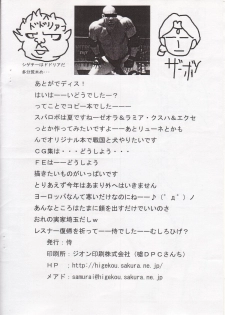 ドドリア
ザーボン
シゲキーはドドリアだ
多分見すぎ…
あとがでディス！
はいはーーいどうでしたー？
ってことでコピー本でした――――
スパロボは夏ですねーゼオラ＆ラミア・クスハ＆エクセ
っとか作ってみたいですよーーあとリューネとかも
んでオリジナル本で戦国と犬やりたいです
ＣＧ集は・・・どうしよう・・・
ＦＥは――どうしよう
描きたいものがいっぱいです
とりあえず今年はあまり外へはいきません
ヨーロッパなんて寒いだけなのにねーー♪（ﾟдﾟ）ノ
あんなところはたまに顔を出すだけでいいのさ
おれの実家埼玉だしｗ
レスナー復帰を祈って――侍でした――むしろひげ？
発行：侍
印刷所：ジオン印刷株式会社（嘘ＤＰＣさんち）
ＨＰ　：http://higekou.sakura.ne.jp/
メアド：samurai@higekou.sakura.ne.jp